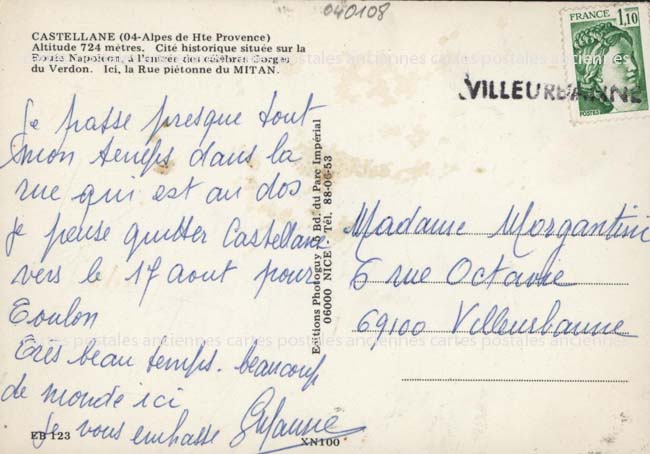 040108
CASTELLANE (04-Alpes de Hte Provence)
Altitude 724 mètres. Cité historique située sur la
Route Napoléon, à l'entrée des célèbres Gorges
du Verdon. Ici, la Rue piétonne du MITAN.
FRANCE
1,10
VILLEURBANNE
Je passe presque tout
mon temps dans la
rue qui est au dos
je pense quitter Castellane
vers le 17 aout pour
Toulon
Très beau temps. beaucoup
de monde ici
je vous embrasse Suzanne
Editions Photoguy Bd. du Parc Impérial
06000 NICE - Tél. 88-06-53
Madame Morgantini
6 rue Octavie
69100 Villeurbanne
cartes postales anciennes cartes postales anciennes cartes postales anciennes
EB 123
XN100